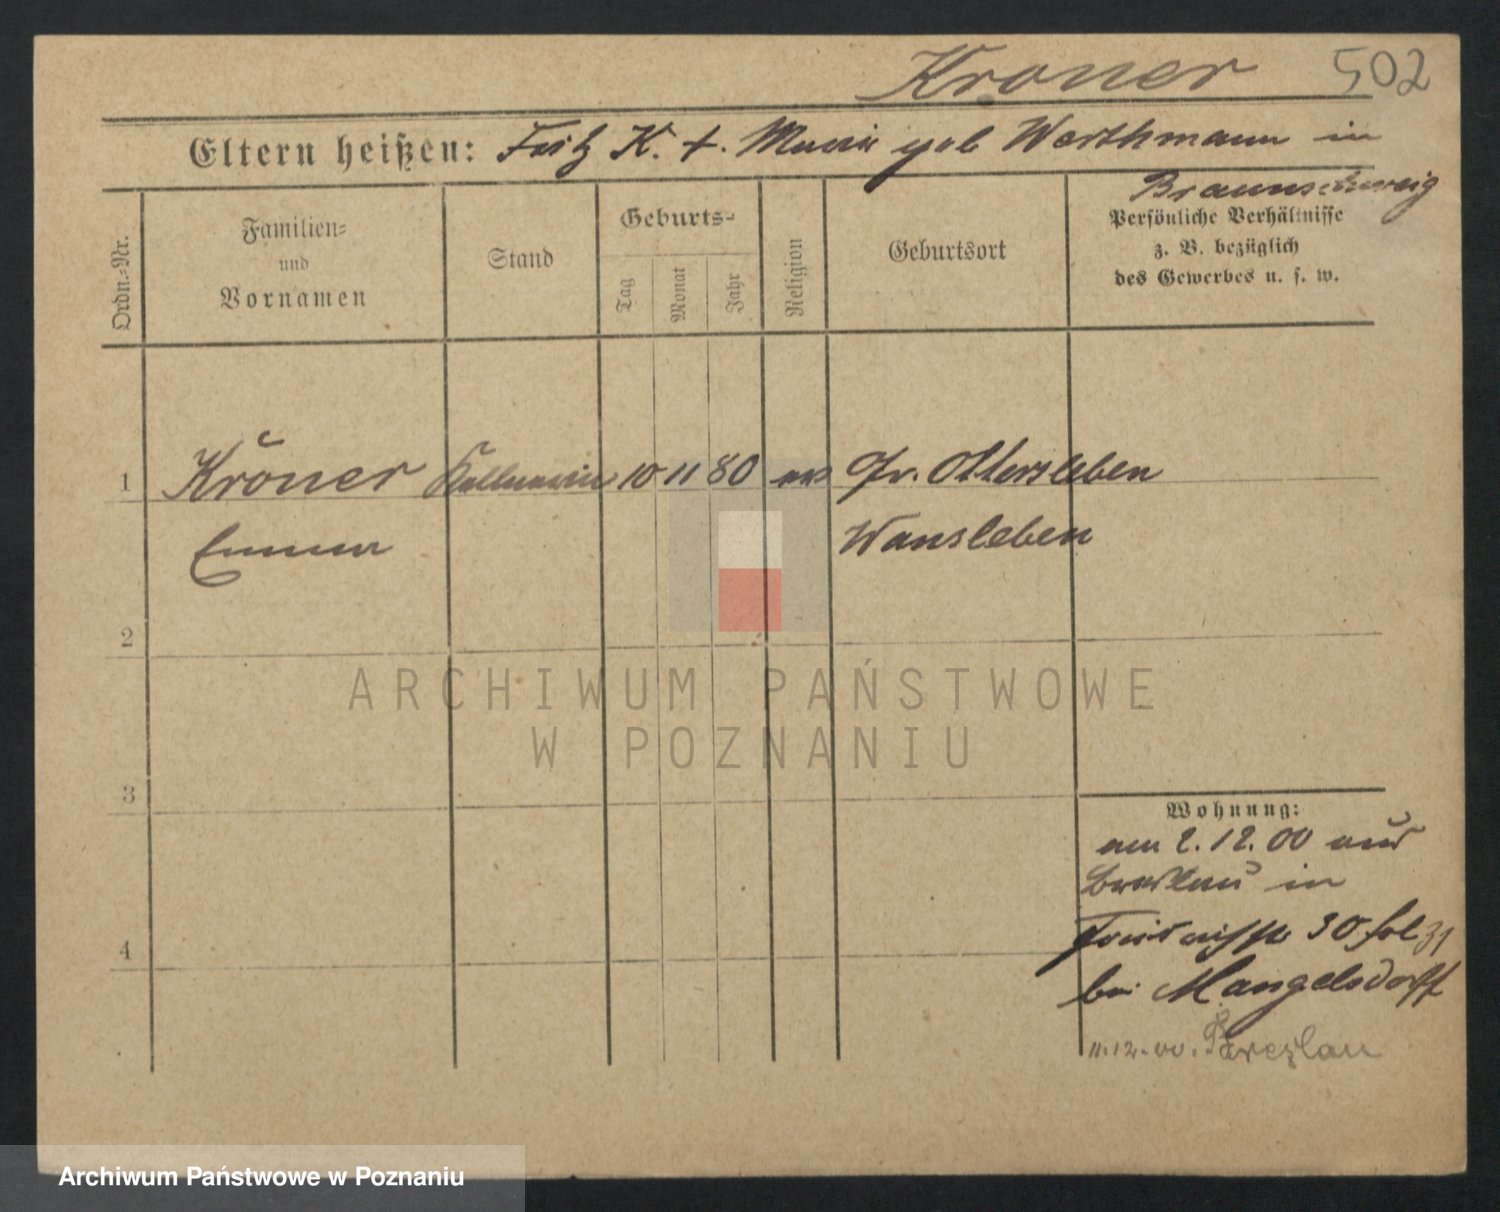 Kroner 502
Eltern heißen: Fritz K. +. Marie geb Werthmann in
Braunschweig
Ordn.-Nr.
Familien-
und
Vornamen
Stand
Geburts-
Tag
Monat
Jahr
Religion
Geburtsort
Persönliche Verhältnisse
z. B. bezüglich
des Gewerbes u. s. w.
1 Kröner Kellnerin 10 11 80 ev Gr. Ottersleben
Emma Wansleben
2
ARCHIWUM PAŃSTWOWE
W POZNANIU
3
Wohnung:
am 2.12.00 aus
Breslau in
30
4
bei Mangelsdorff
11.12.00. Breslau
Archiwum Państwowe w Poznaniu